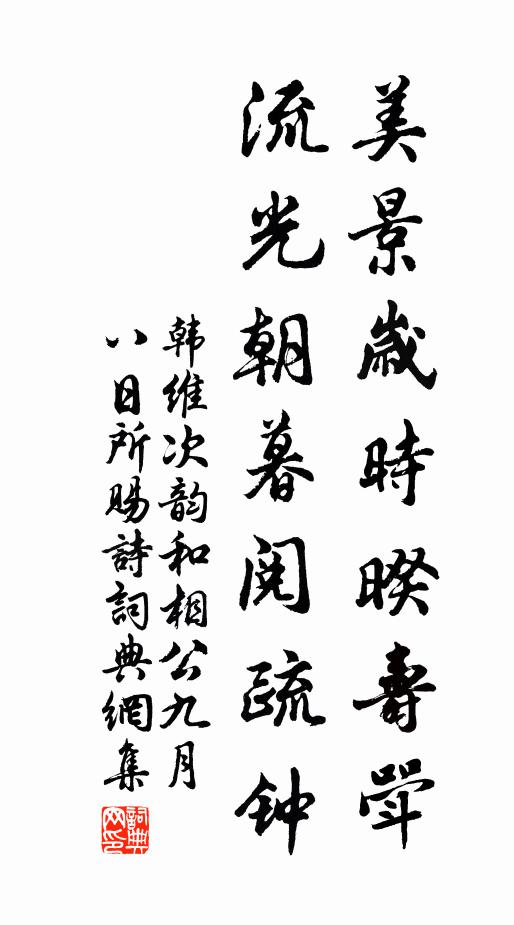 美景歲時暌壽斝
流光朝暮閱疏钟
韩維次韵和相公九月
八日所賜詩詞典網集
詞典网印